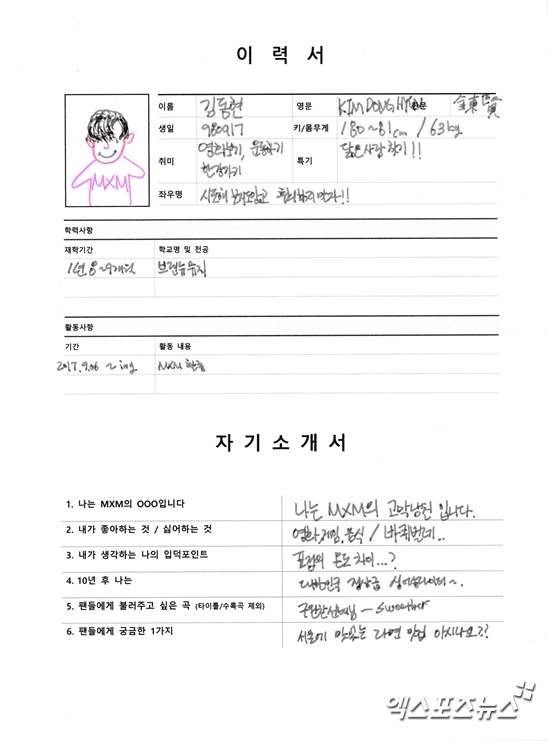 이 력 서
이름 김동현 영문 KIM DONG HYUN 한문 金東賢
생일 980917 키/몸무게 180~81cm / 63kg
취미 영화보기, 운동하기 특기 닮은사람 찾기!!
한강가기
MXM
좌우명 말자!!
학력사항
재학기간 학교명 및 전공
1년 8~9개월 브랜뉴뮤직
활동사항
기간 활동 내용
2017.9.06 ~ MXM 활동
자 기 소 개 서
1. 나는 MXM의 OOO입니다 나는 MXM의 고막남친 입니다.
2. 내가 좋아하는 것 / 싫어하는 것 영화,게임,음식 / 바퀴벌레..
3. 내가 생각하는 나의 입덕포인트 표정의 온도 차이...?
4. 10년 후 나는 대한민국 정상급 싱어송라이터~.
5. 팬들에게 불러주고 싶은 곡 (타이틀/수록곡 제외) 구원찬선배님 -
6. 팬들에게 궁금한 1가지 서울에 맛있는 라면 맛집 아시나요??
엑스포츠뉴스